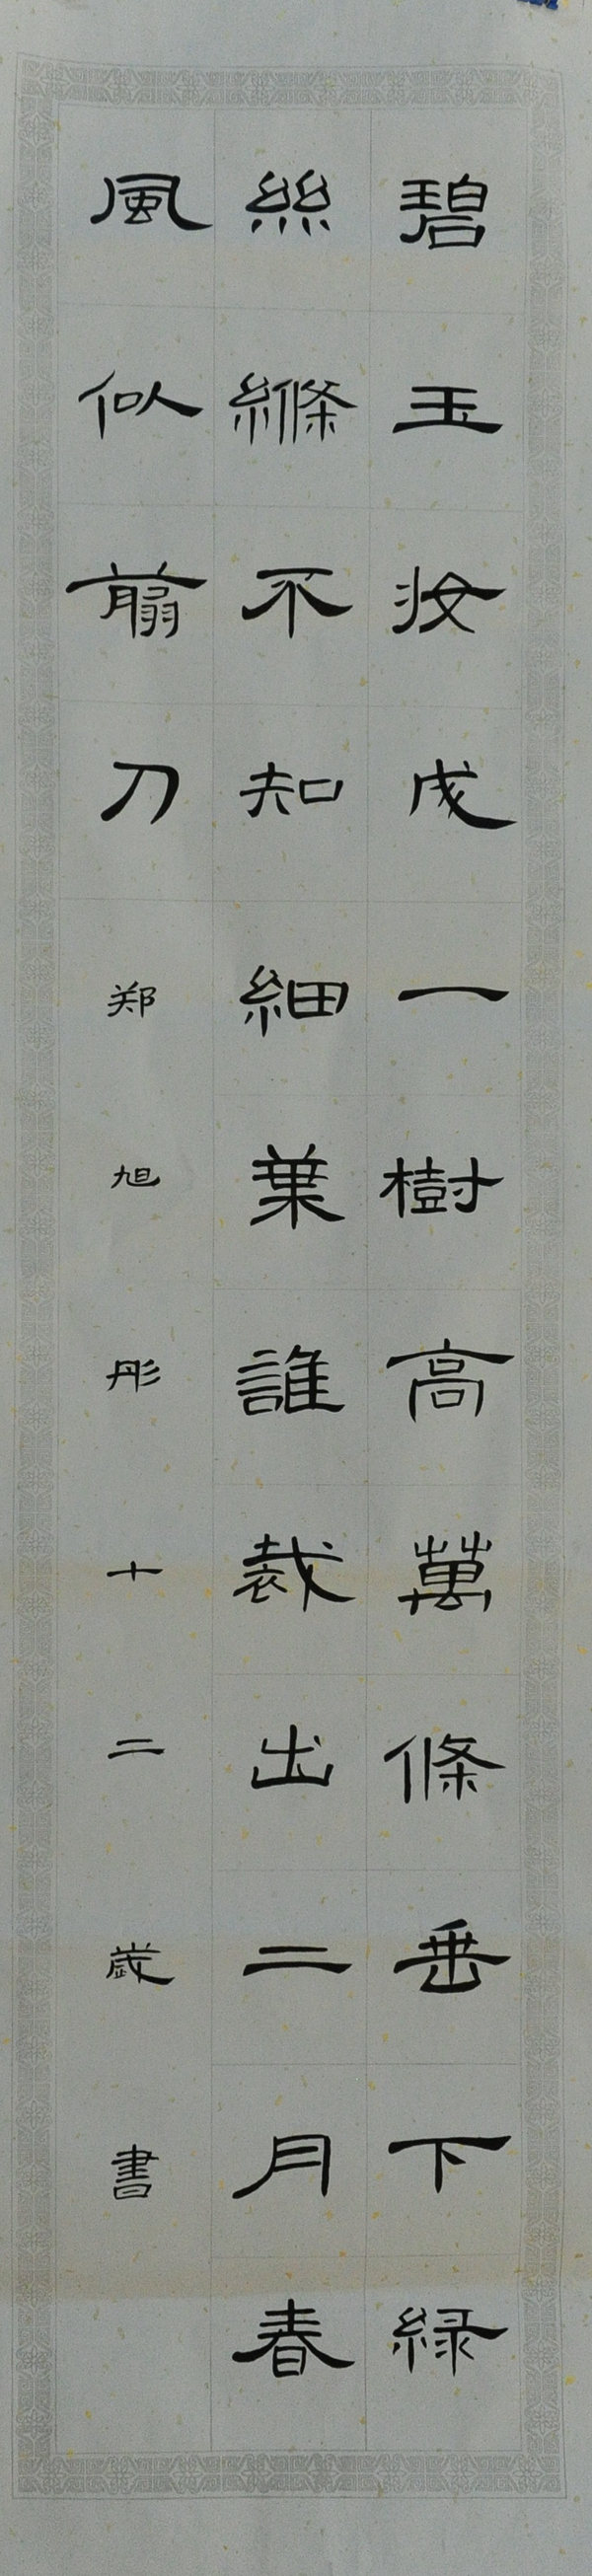 碧玉妝成一樹高萬條垂下緑
絲縧不知細葉誰裁出二月春
風似翦刀郑旭彤十二歲書